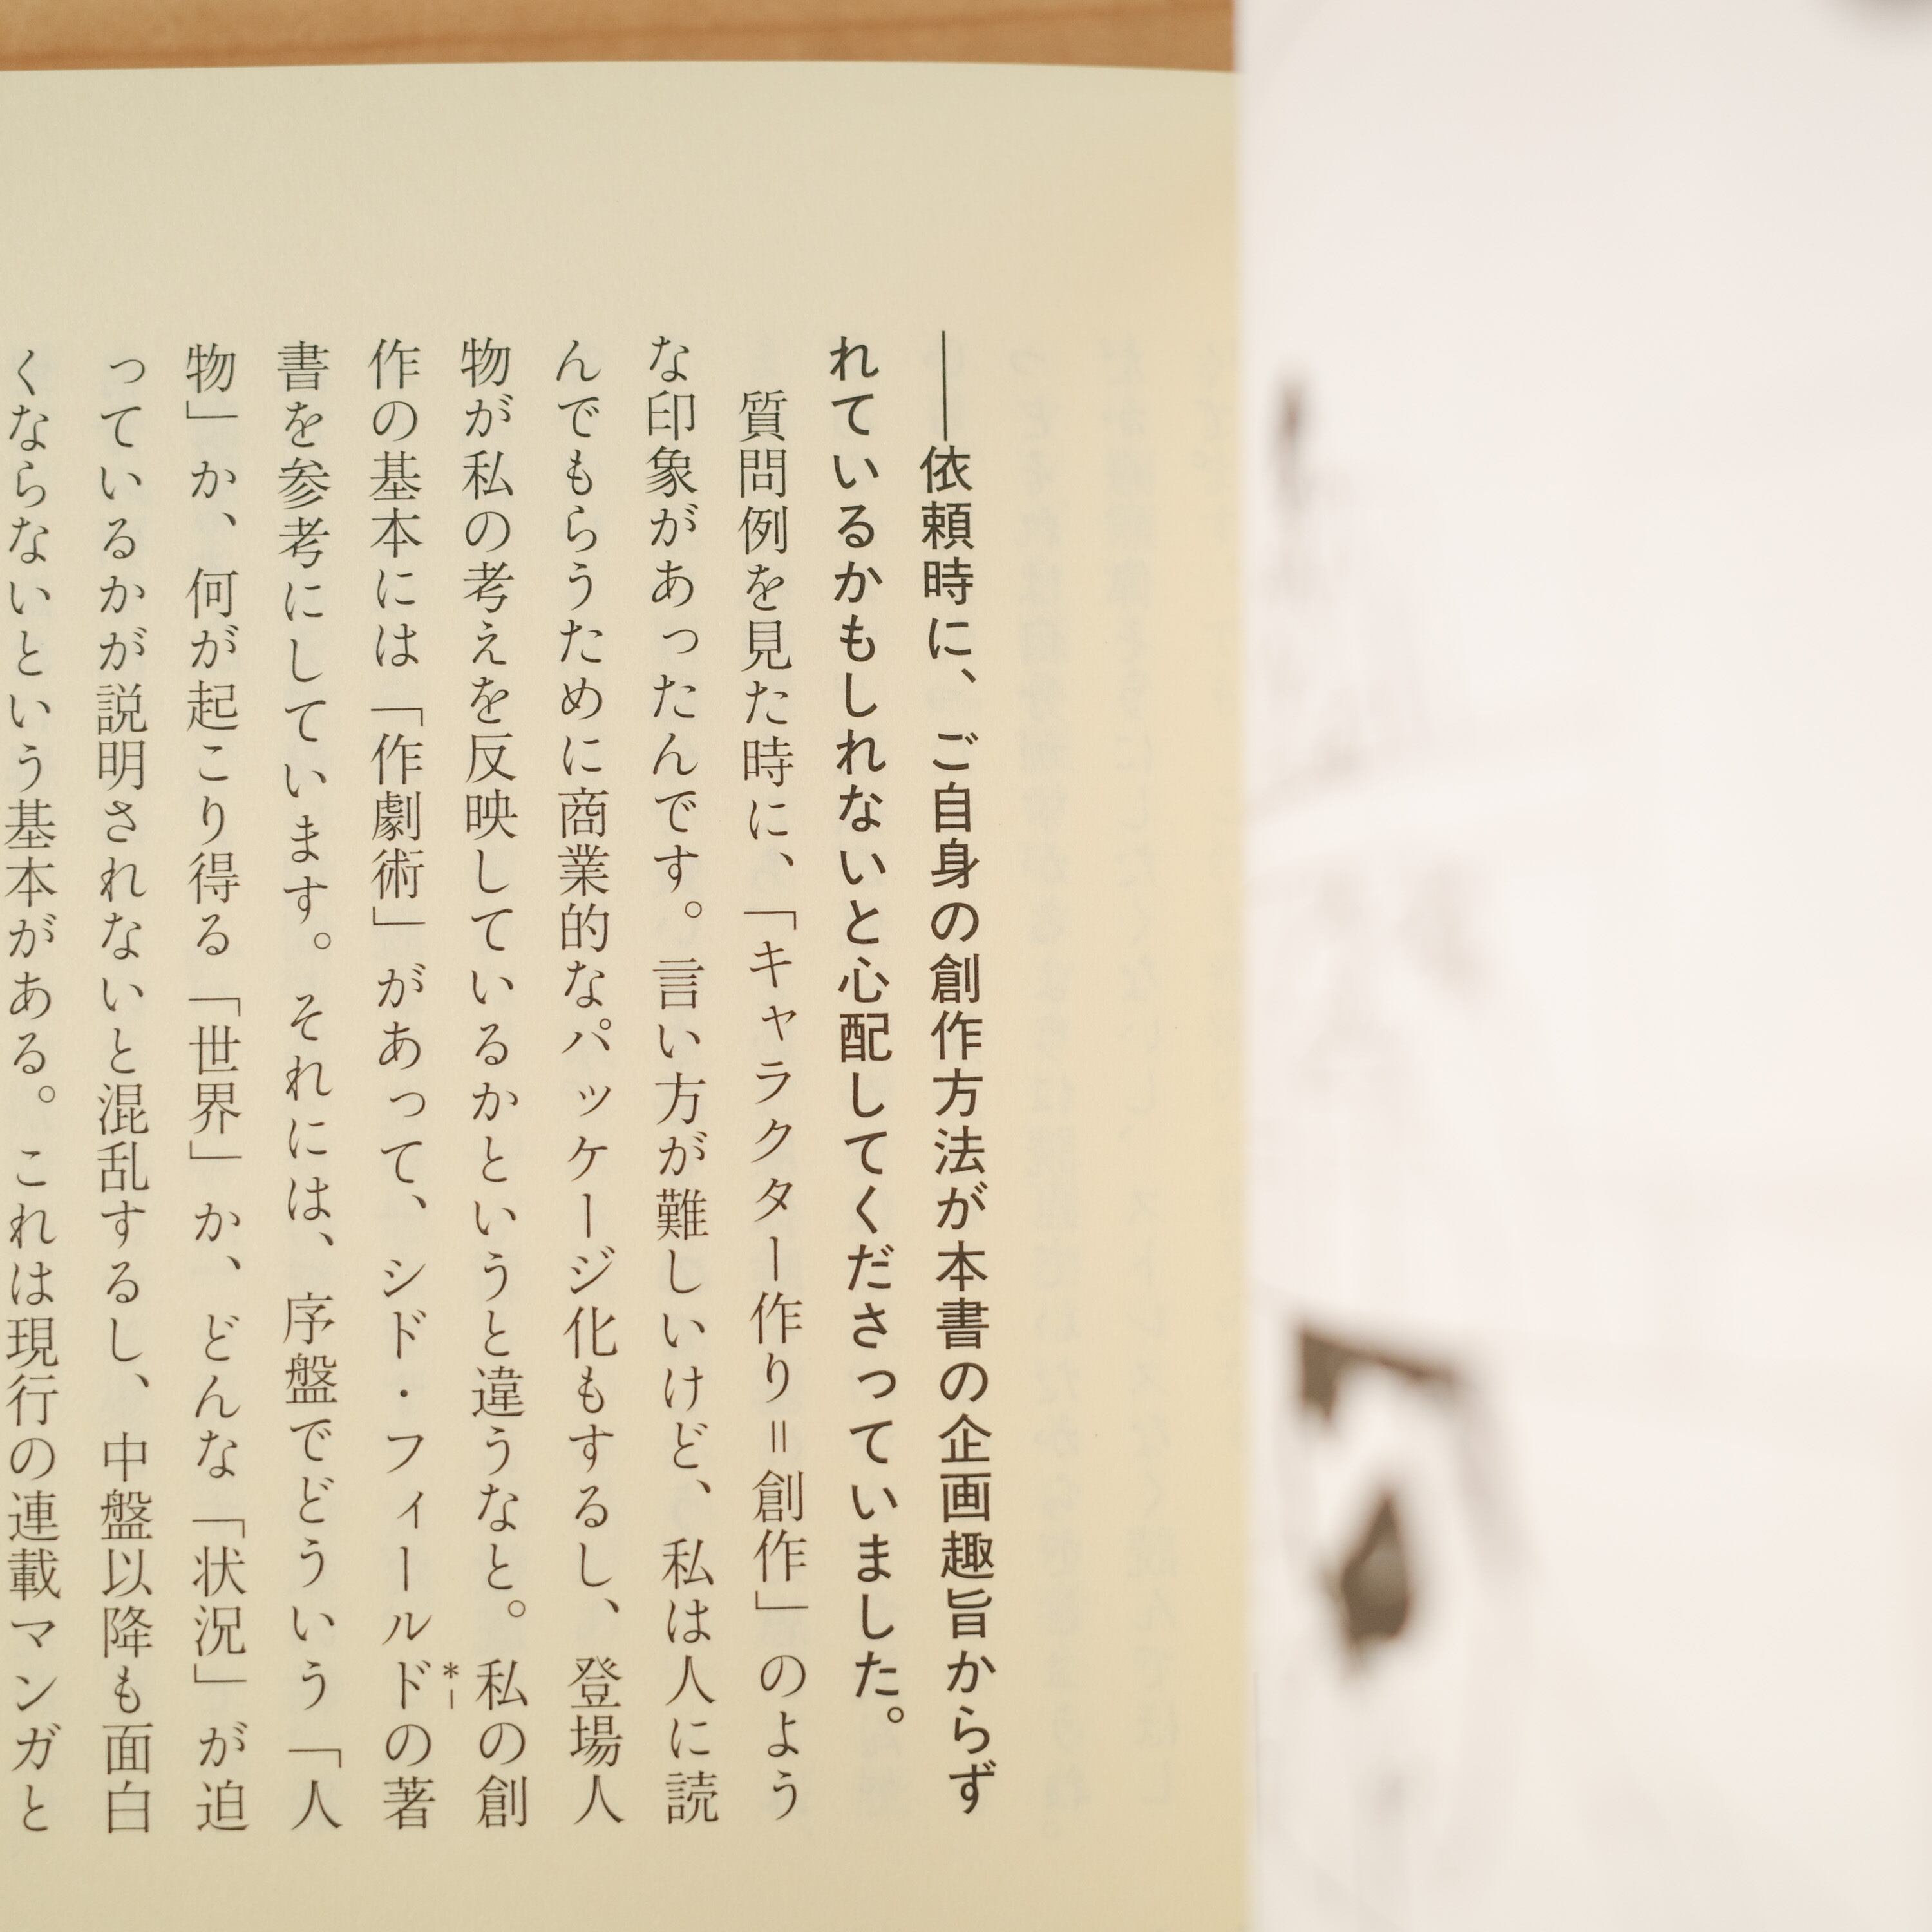 ――依頼時に、ご自身の創作方法が本書の企画趣旨からず
れているかもしれないと心配してくださっていました。
質問例を見た時に、「キャラクター作り＝創作」のよう
な印象があったんです。言い方が難しいけど、私は人に読
んでもらうために商業的なパッケージ化もするし、登場人
物が私の考えを反映しているかというと違うなと。私の創
作の基本には「作劇術」があって、シド・フィールド*1の著
書を参考にしています。それには、序盤でどういう「人
物」か、何が起こり得る「世界」か、どんな「状況」が迫
っているかが説明されないと混乱するし、中盤以降も面白
くならないという基本がある。これは現行の連載マンガと